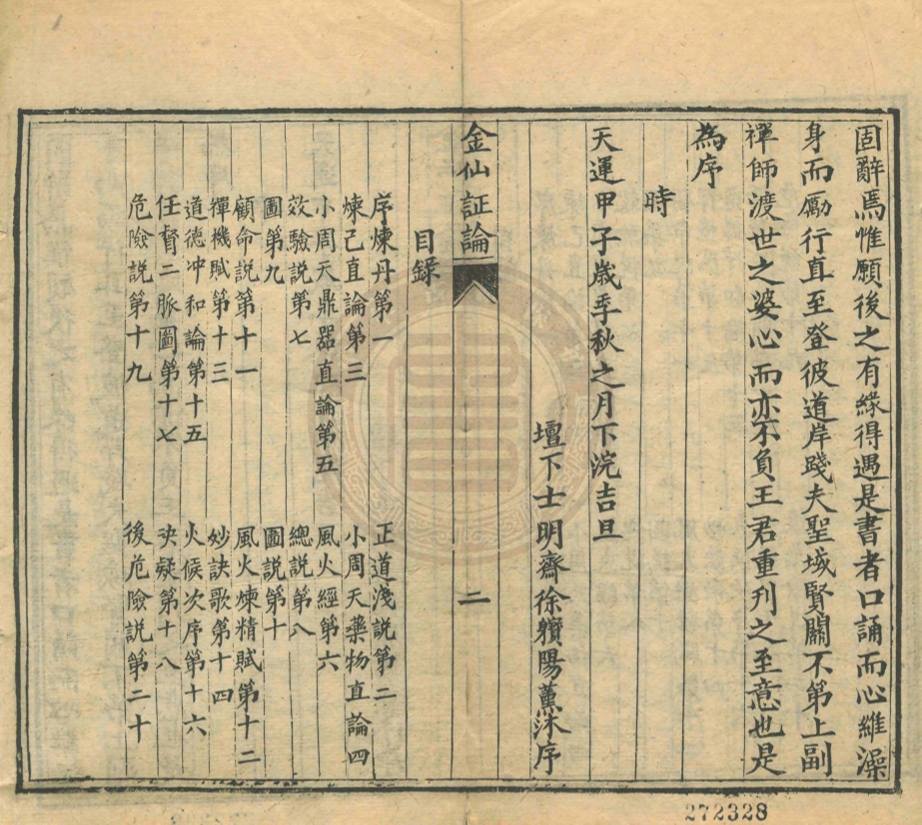 固辭焉惟願後之有緣得遇是書者口誦而心維澡
身而勵行直至登彼道岸踐夫聖域賢關不第上副
禪師渡世之婆心而亦不負王君重刊之至意也是
為序
時
天運甲子歲季秋之月下浣吉旦
壇下士明齋徐巑陽薰沐序
金仙証論 二
目錄
序煉丹第一 正道淺說第二
煉己直論第三 小周天藥物直論四
小周天鼎器直論第五 風火經第六
效驗說第七 總說第八
圖第九 圖說第十
顧命說第十一 風火煉精賦第十二
禪機賦第十三 妙訣歌第十四
道德冲和論第十五 火候次序第十六
任督二脈圖第十七 决疑第十八
危險說第十九 後危險說第二十
272328